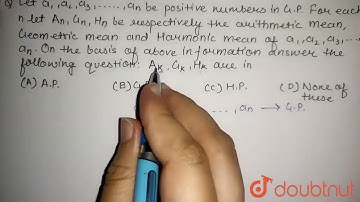 Q Let a₁, a₂, a₃, ....., an be positive numbers in G.P. For each
n let An, Gn, Hn be respectively the arithmetic mean,
Geometric mean and Harmonic mean of a₁, a₂, a₃, ...
an. On the basis of above information answer the
following question: Ak, Gk, Hk are in
(A) A.P. (B) G (C) H.P. (D) None of these
...., an → G.P.
doubtnut